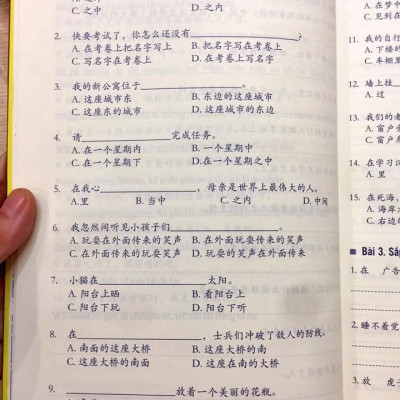 C. 之中 D. 之内
2. 快要考试了,你怎么还没有____________?
A. 在考卷上把名字写上 B. 把名字写在考卷上
C. 写名字在考卷上 D. 在考卷上写名字
3. 我的新公寓位于____________。
A. 这座城市东 B. 东边的这座城市
C. 这座东的城市 D. 这座城市的东边
4. 请____________完成任务。
A. 在一个星期内 B. 一个星期中
C. 在一个星期下 D. 在一个星期之中
5. 在我心____________,母亲是世界上最伟大的人。
A.里 B. 当中 C. 之内 D. 中间
6. 我忽然间听见小孩子们____________。
A. 玩耍在外面传来的笑声 B. 在外面玩耍传来的笑声
C. 在外面传来玩耍的笑声 D. 玩耍的笑声传来在外面
7. 小猫在____________太阳。
A. 阳台上晒 B. 看阳台上
C. 阳台下玩 D. 阳台下听
8. 在____________,士兵们冲破了敌人的防线。
A. 南面的这座大桥 B. 这座大桥的南
C. 这座大桥的南面 D. 这座在南的大桥
9. ____________放着一个美丽的花瓶。
A. 在梦中
C. 见到在
11. 我的自行
A. 下楼的
C. 车棚里
12. 墙上挂
A. 过
13. 我们的老
A. 窗户
C. 窗户
14. 在学习汉
A. 里
15. 在死海,
A. 海岸
C. 右岸
Bài 3. Sắp
1. 在 广告
2. 睡不着觉
3. 放 虎子